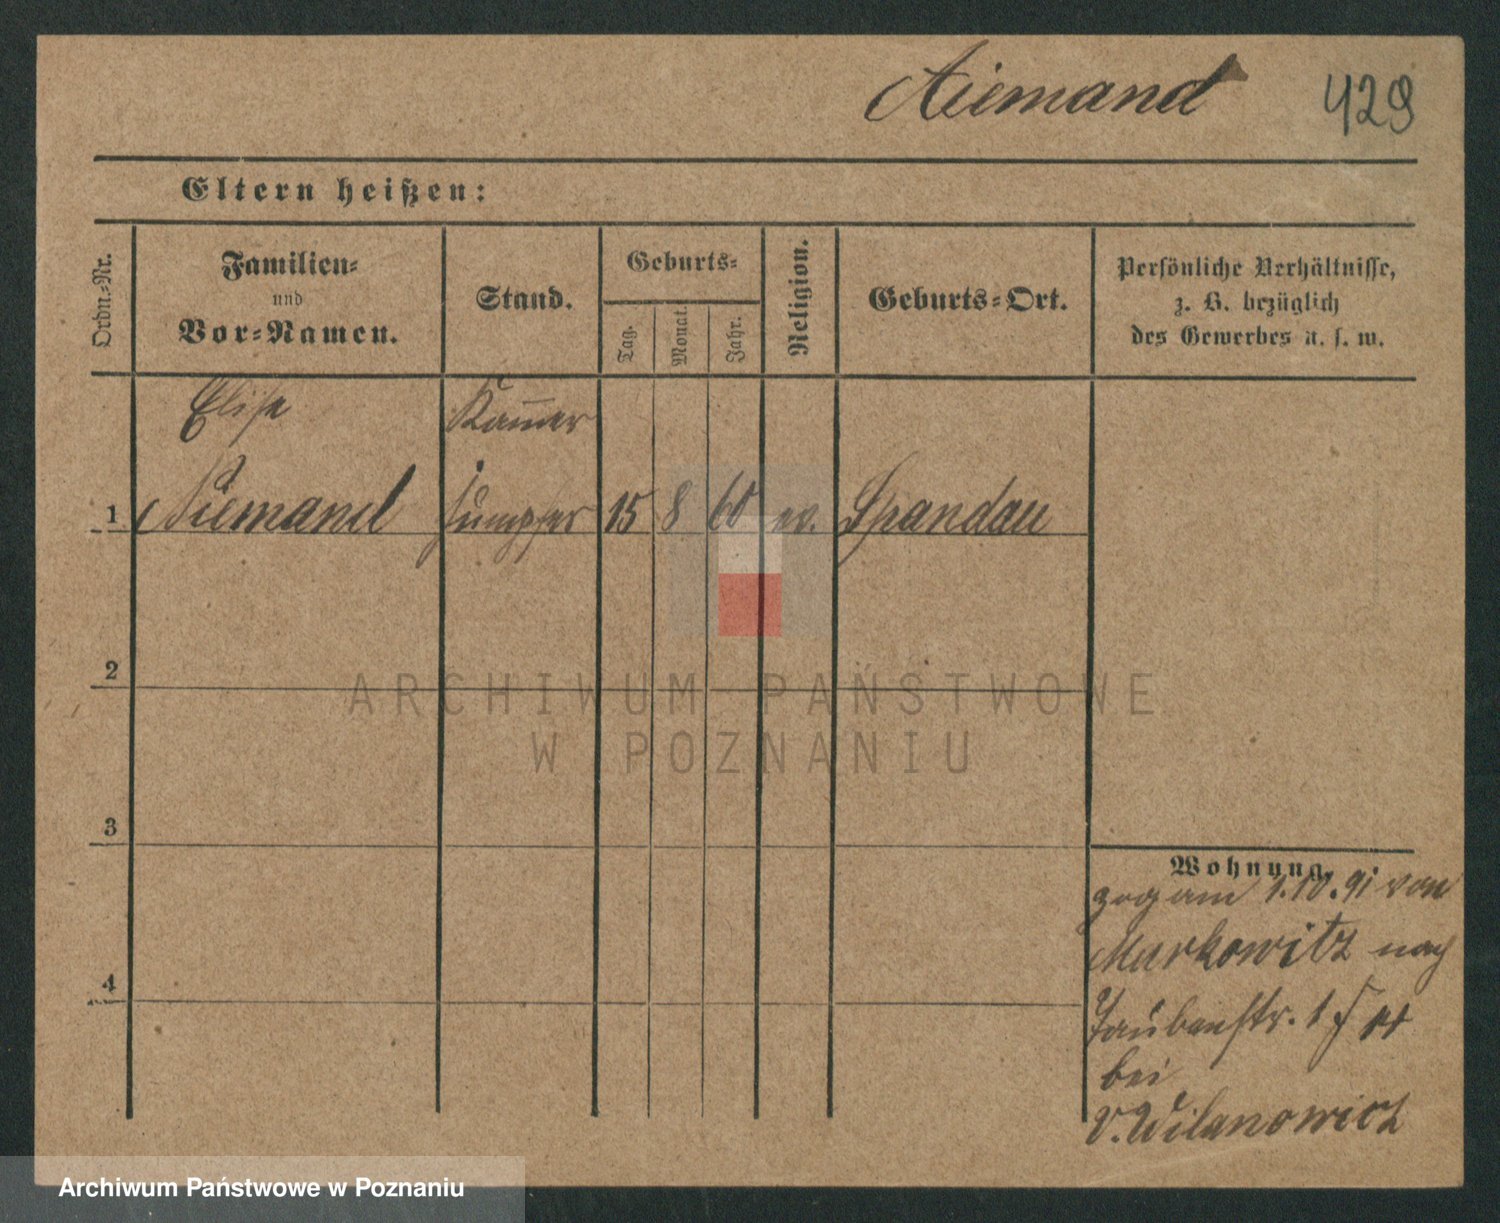 Niemand 429
Eltern heißen:
Ordn.-Nr.
Familien-
und
Vor-Namen.
Stand.
Geburts-
Tag.
Monat.
Jahr.
Religion.
Geburts-Ort.
Persönliche Verhältnisse,
z. B. bezüglich
des Gewerbes u. s. w.
Elise Kam̅er
1 Niemand jungfer 15 8 60 ev. Spandau
2
3
4
Wohnung.
zog am 1.10.91 von
Markowitz nach
Taubenstr. 1
bei
v. Wilanowicz
ARCHIWUM PAŃSTWOWE
W POZNANIU
Archiwum Państwowe w Poznaniu